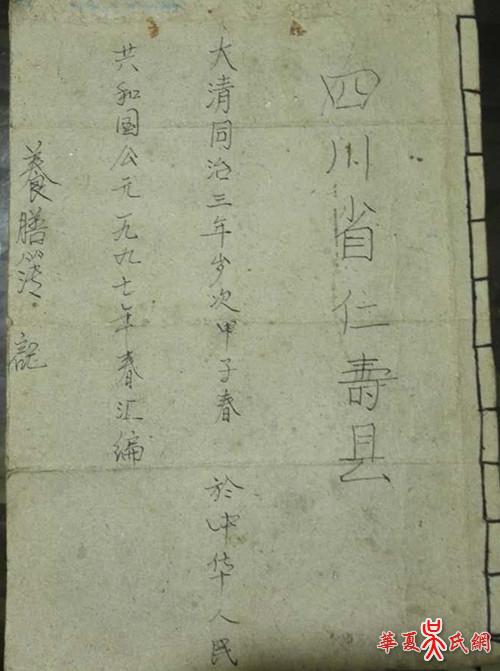 四川省仁壽县
大清同治三年岁次甲子春 於中华人民
共和国公元一九九七年春汇编
養膳 記
華夏吴氏網